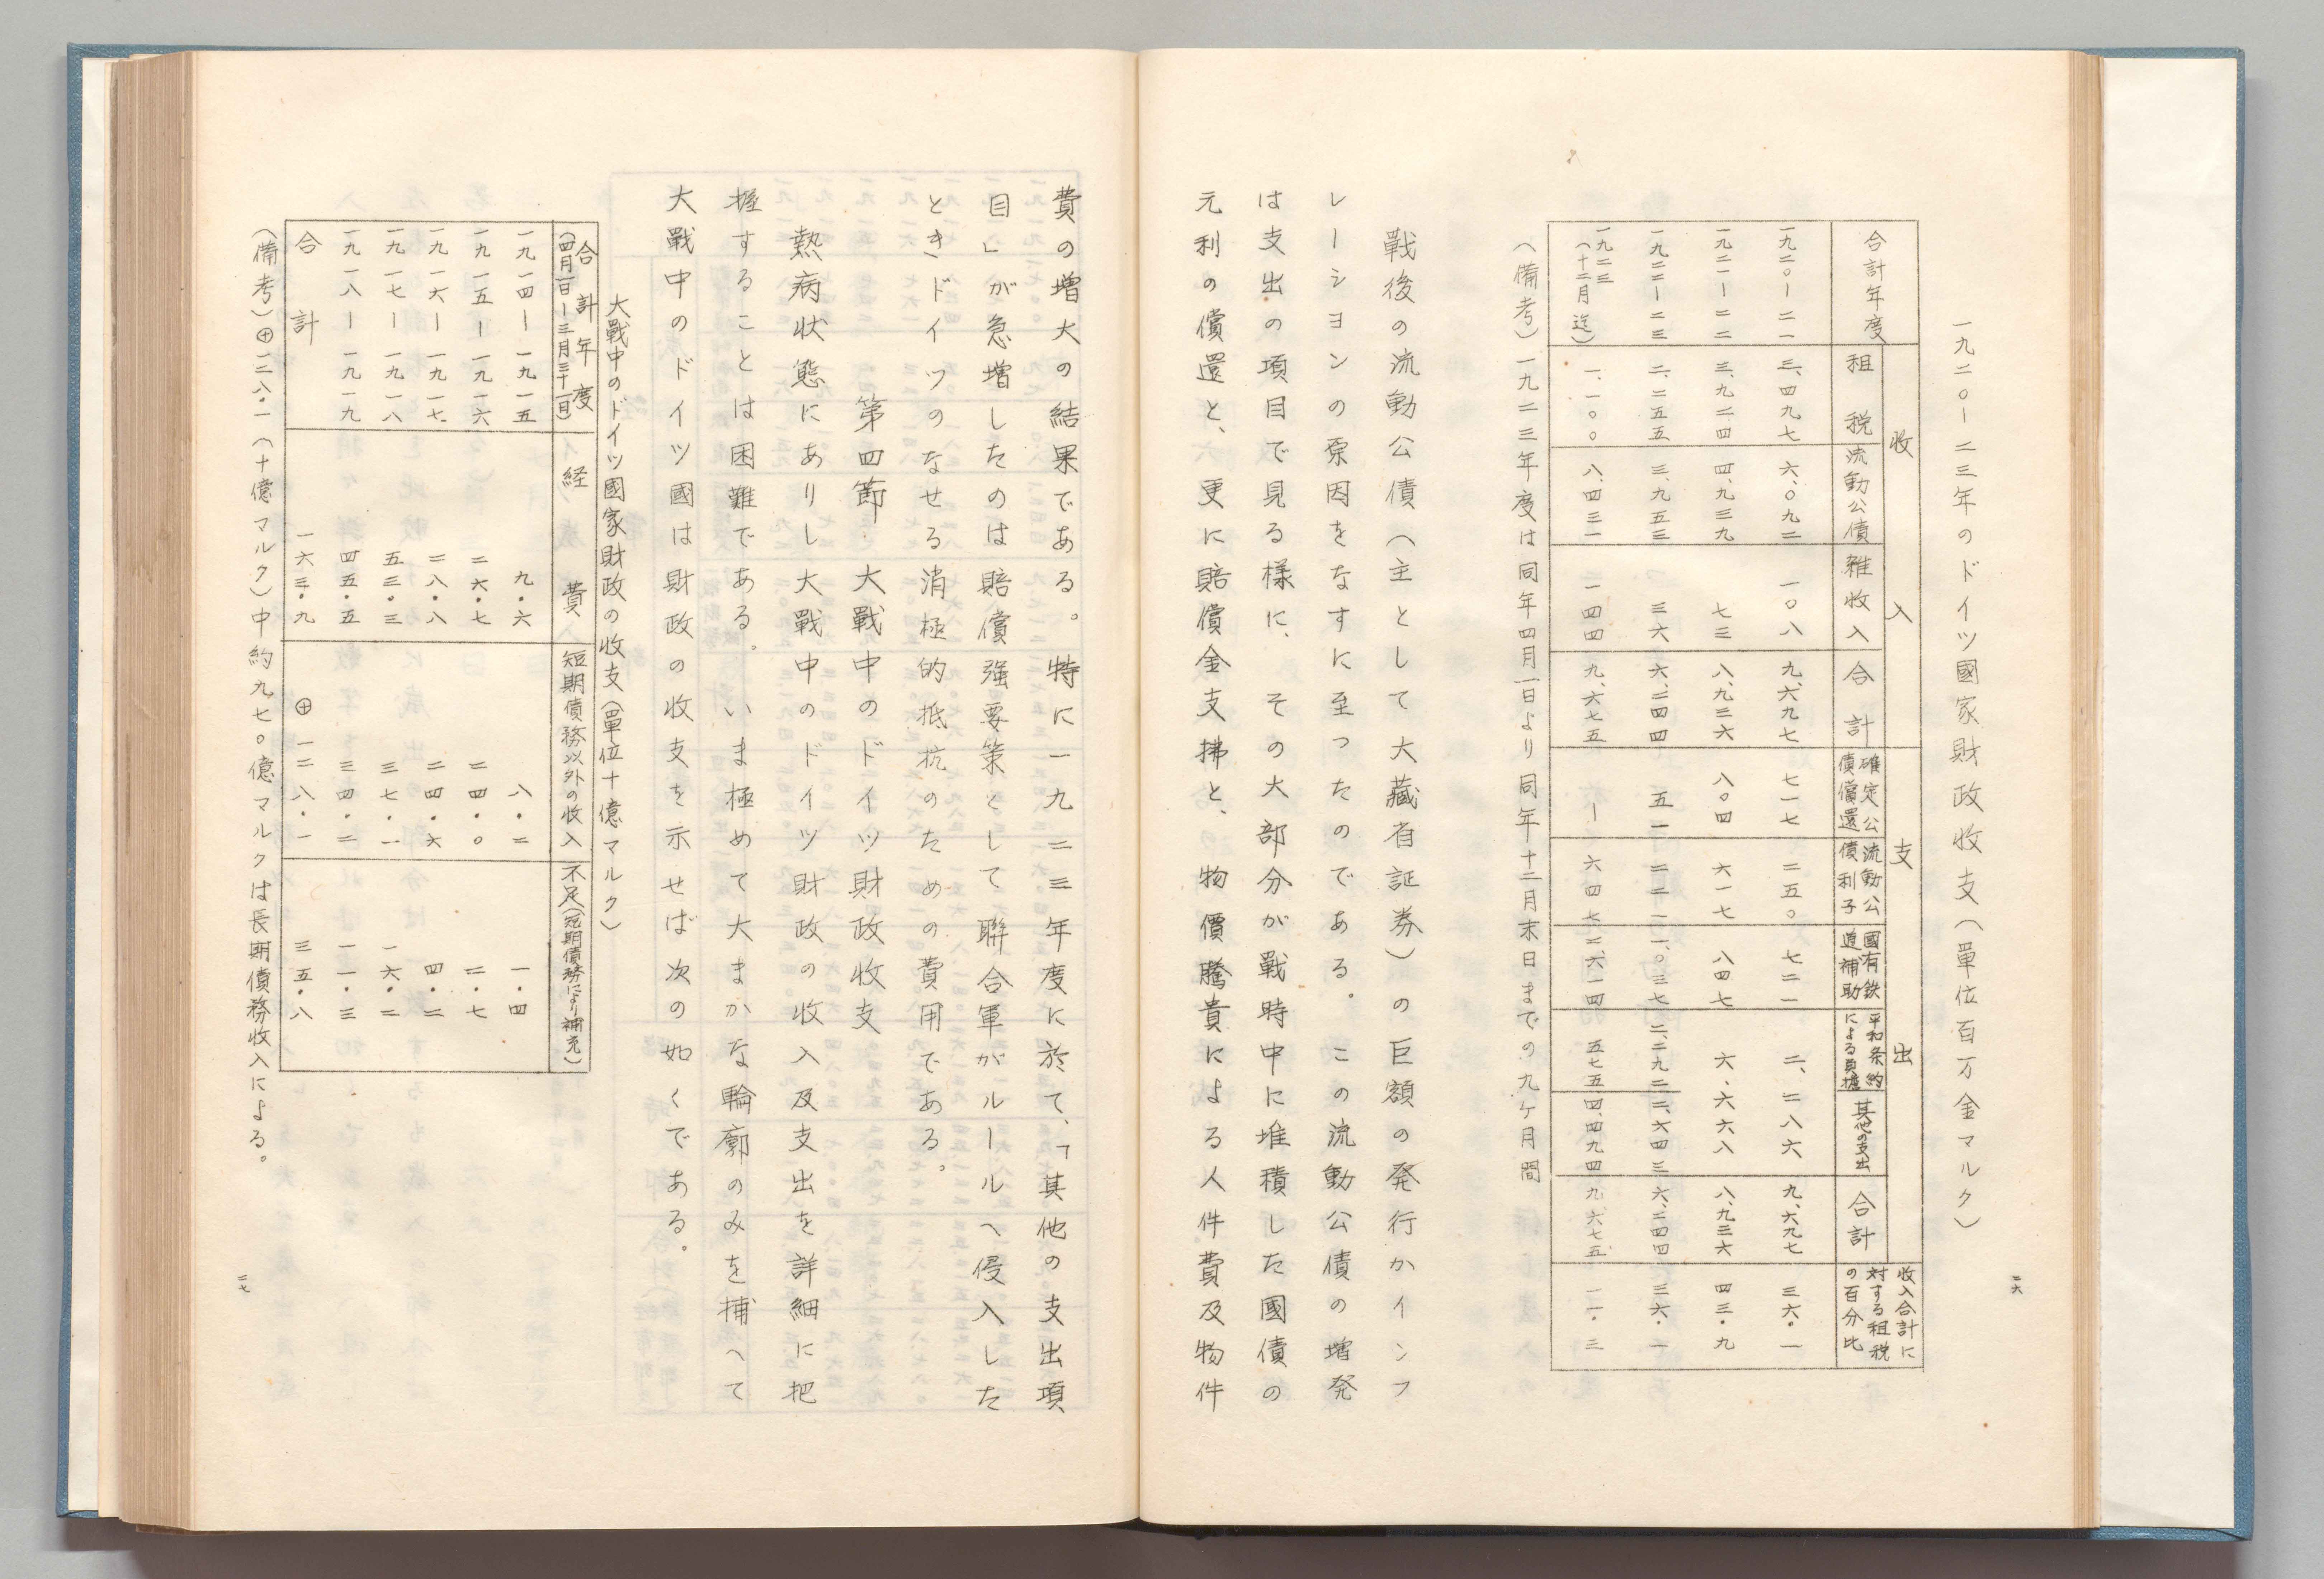 二六
一九二〇ー二三年のドイツ國家財政收支（單位百万金マルク）
收入 支出
合計年度 租税 流動公債 雜收入 合計 確定公債償還 流動公債利子 國有鉄道補助 平和条約による負擔 其他の支出 合計 收入合計に対する租税の百分比
一九二〇ー二一 三、四九七 六、〇九二 一〇八 九、六九七 七一七 二五〇 七二一 二、二八六 九、六九七 三六・一
一九二一ー二二 三、九二四 四、九三九 七三 八、九三六 八〇四 六一七 八四七 六、六六八 八、九三六 四三・九
一九二二ー二三 二、二五五 三、九五三 三六 六、二四四 五一 二二一 一、〇三七 二、二九二 二、六四三 六、二四四 三六・一
一九二三（十二月迄） 一、一〇〇 八、四三一 一四四 九、六七五 ー 六四七 二、六一四 五七五 四、四九四 九、六七五 一一・三
（備考）一九二三年度は同年四月一日より同年十二月末日までの九ケ月間
戰後の流動公債（主として大藏省証券）の巨額の発行かインフ
レーシヨンの原因をなすに至つたのである。この流動公債の増発
は支出の項目で見る様に、その大部分が戰時中に堆積した國債の
元利の償還と、更に賠償金支拂と、物價騰貴による人件費及物件
費の増大の結果である。特に一九二三年度に於て、「其他の支出項
目」が急増したのは賠償強要策として聯合軍がルールへ侵入した
ときドイツのなせる消極的抵抗のための費用である。
第四節 大戰中のドイツ財政收支
熱病状態にありし大戰中のドイツ財政の收入及支出を詳細に把
握することは困難である。いま極めて大まかな輪廓のみを捕へて
大戰中のドイツ國は財政の收支を示せば次の如くである。
大戰中のドイツ國家財政の收支（單位十億マルク）
合計年度（四月一日ー三月三十一日） 経費 短期債務以外の收入 不足（短期債務により補充）
一九一四ー一九一五 九・六 八・二 一・四
一九一五ー一九一六 二六・七 二四・〇 二・七
一九一六ー一九一七 二八・八 二四・六 四・二
一九一七ー一九一八 五三・三 三七・一 一六・二
一九一八ー一九一九 四五・五 三四・二 一一・三
合計 一六三・九 ⊕一二八・一 三五・八
（備考）⊕一二八・一（十億マルク）中約九七〇億マルクは長期債務收入による。
二七